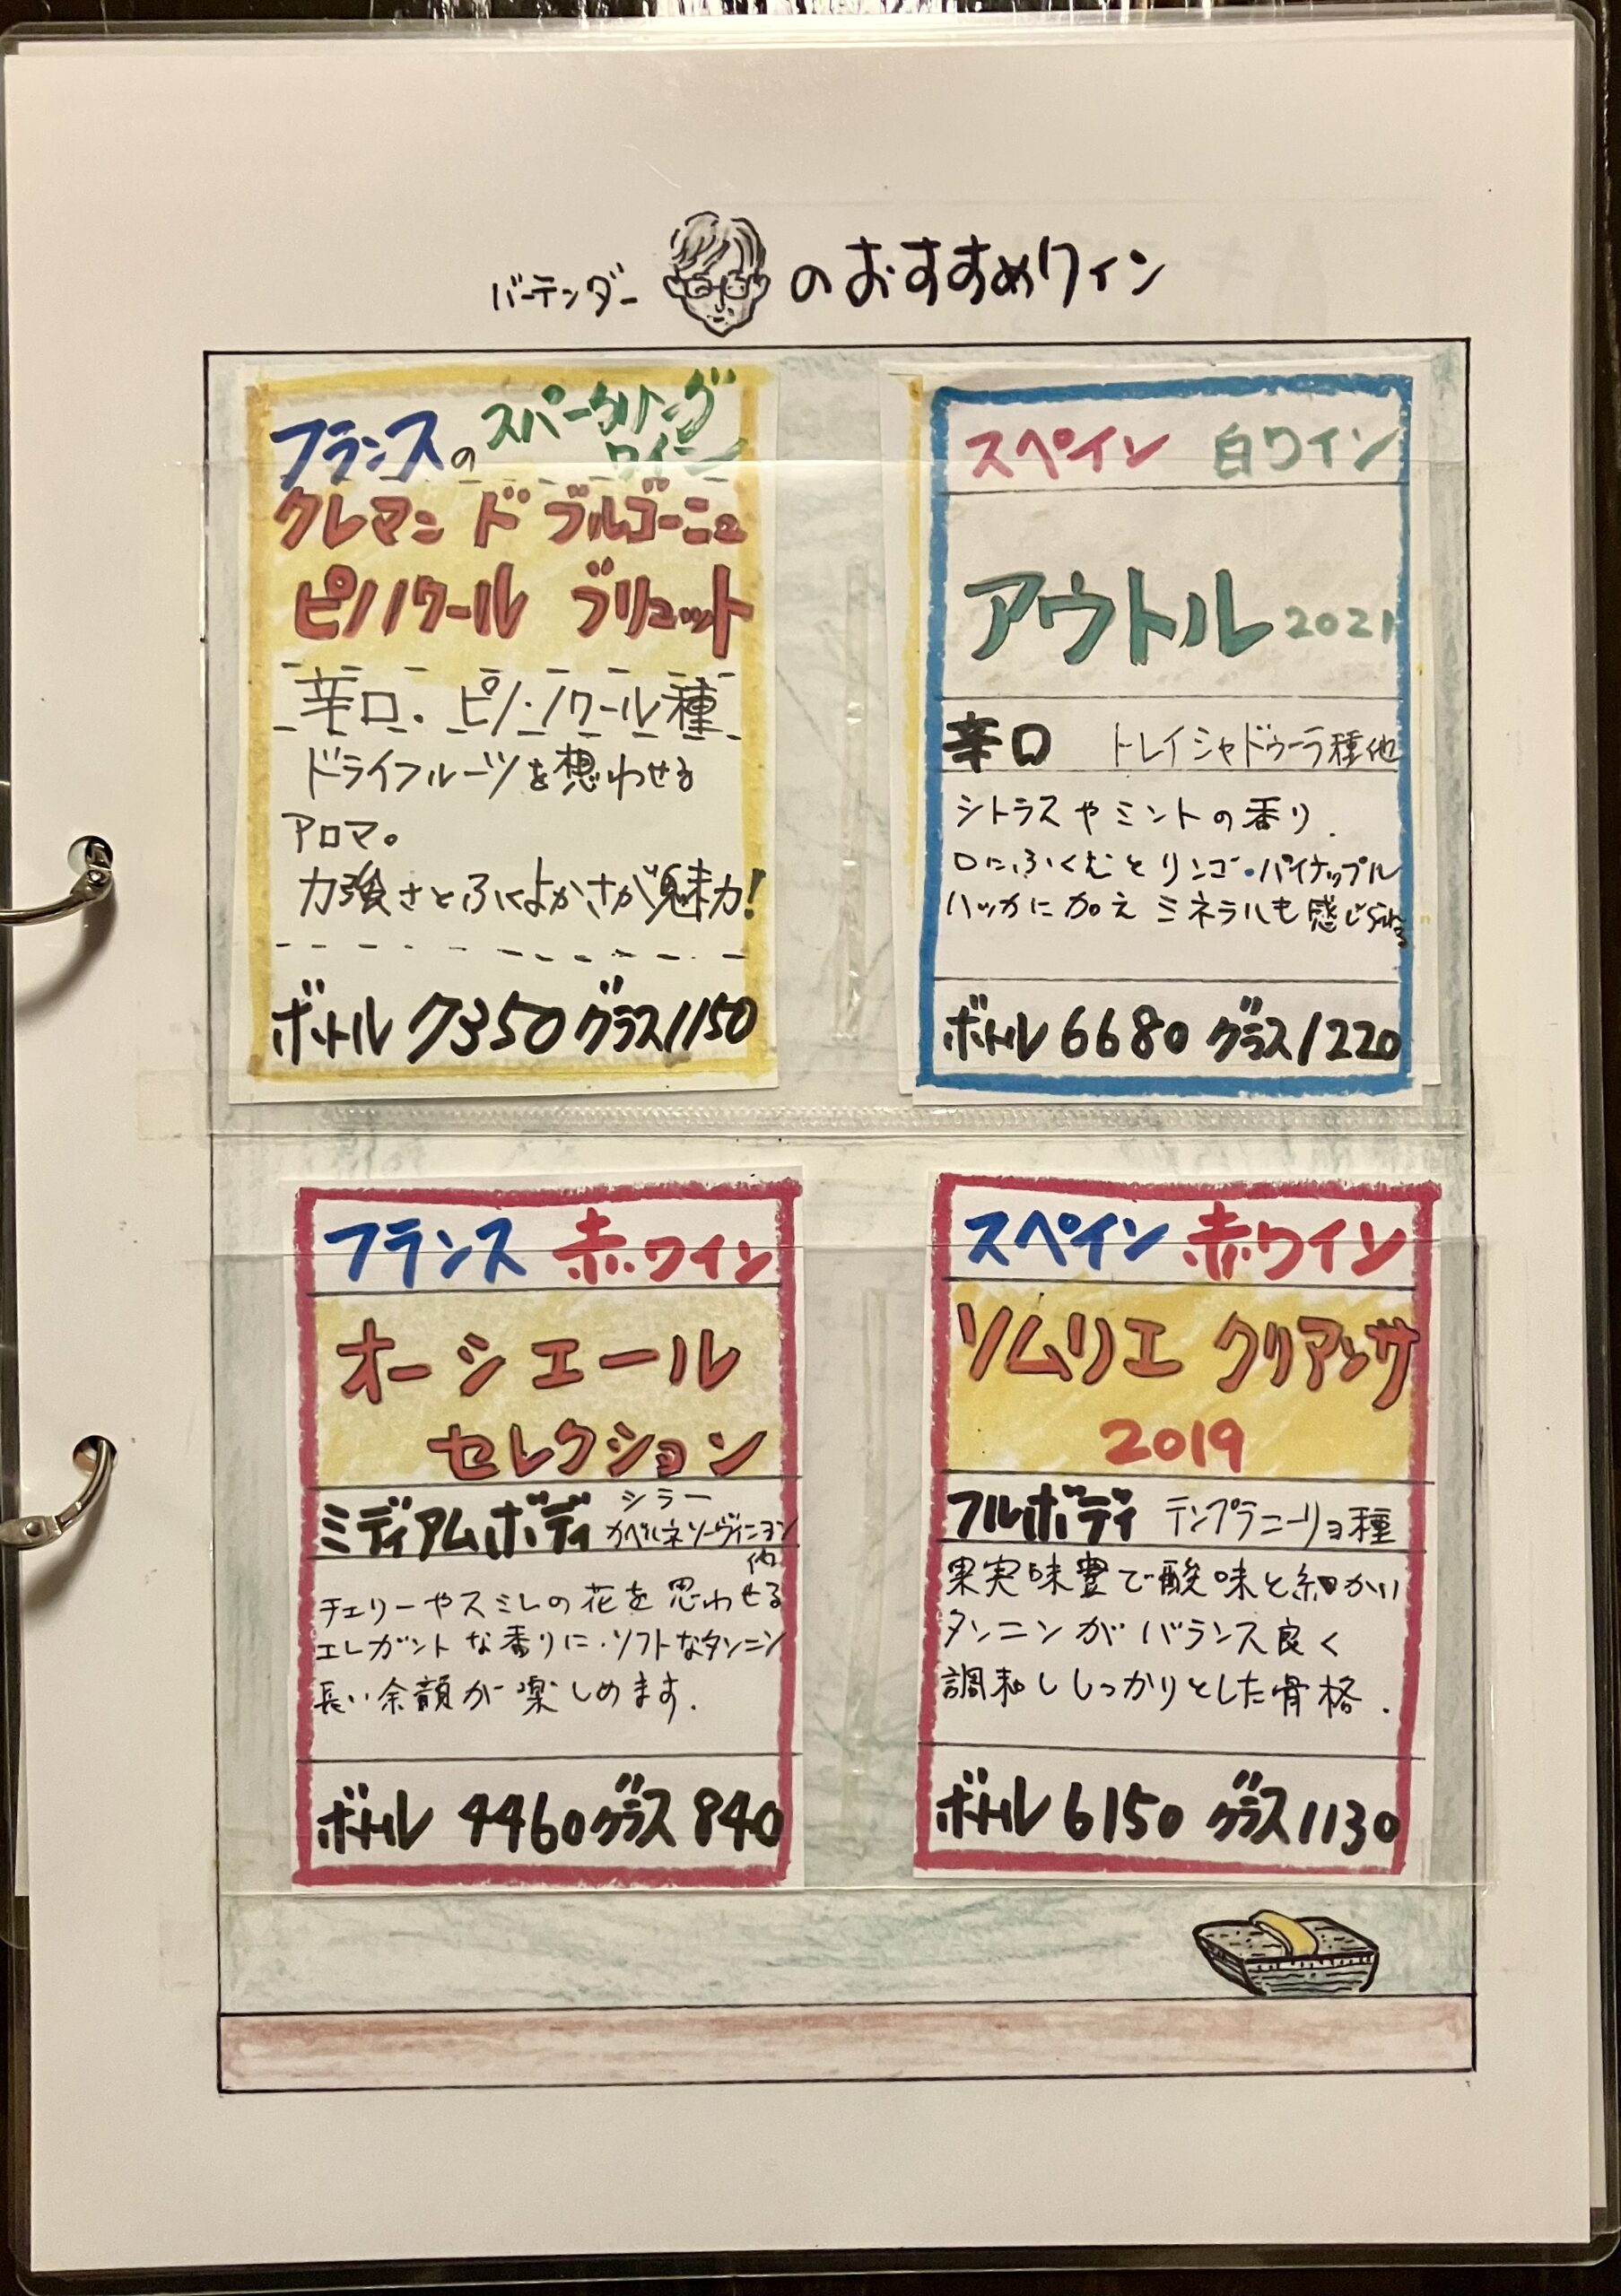 バーテンダー のおすすめワイン
フランスの スパークリング
ワイン
クレマン ド ブルゴーニュ
ピノノワール ブリュット
辛口。ピノ・ノワール種
ドライフルーツを想わせる
アロマ。
力強さとふくよかさが魅力!
ボトル 7350 グラス 1150
スペイン 白ワイン
アウトル 2021
辛口 トレイシャドゥーラ種他
シトラスやミントの香り.
口にふくむとリンゴ・パイナップル
ハッカに加えミネラルも感じられる
ボトル 6680 グラス 1220
フランス 赤ワイン
オーシエール
セレクション
ミディアムボディ シラー
カベルネソーヴィニヨン
他
チェリーやスミレの花を思わせる
エレガントな香りに・ソフトなタンニン
長い余韻が楽しめます.
ボトル 4460 グラス 840
スペイン 赤ワイン
ソムリエ クリアンサ
2019
フルボディ テンプラニーリョ種
果実味豊で酸味と細かい
タンニンがバランス良く
調和ししっかりとした骨格.
ボトル 6150 グラス 1130